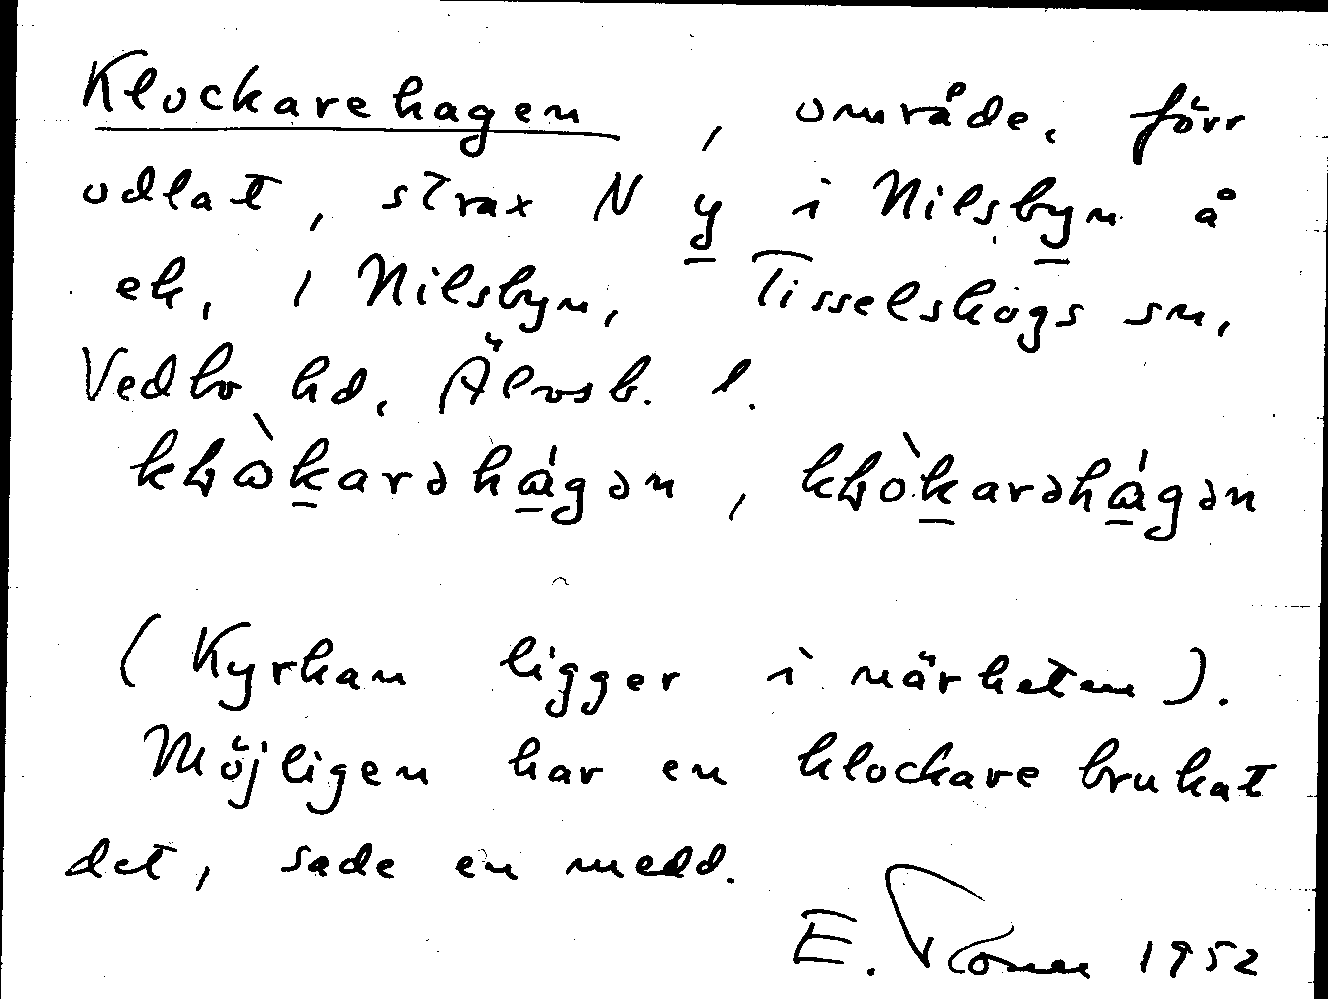 Klockarehagen, område, förr
odlat, strax N y i Nilsbyn å
ek. 1 Nilsbyn, Tisselskogs sn,
Vedbo hd, Älvsb. l.
(Kyrkan ligger i närheten).
Möjligen har en klockare brukat
det, sade en medd.
E. 1952